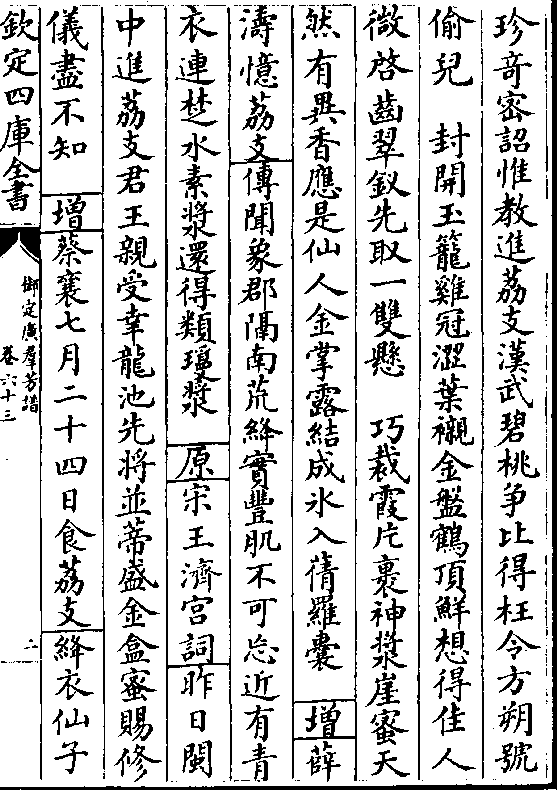 珍奇密詔惟教進荔支漢武碧桃争比得枉令方朔號
偷兒　封開玉籠雞冠澀葉襯金盤鶴頂鮮想得佳人
微啓齒翠釵先取一雙懸　巧裁霞片裹神漿崖蜜天
然有異香應是仙人金掌露結成氷入蒨羅囊　增薛
濤憶荔支傳聞象郡隔南荒絳實豐肌不可忘近有青
衣連楚水素漿還得類瓊漿　原宋王濟宫詞昨日閩
中進荔支君王親受幸龍池先將並蒂盛金盒蜜賜修
儀盡不知　增蔡襄七月二十四日食荔支絳衣仙子
欽定四庫全書
御定廣羣芳譜
卷六十三
二